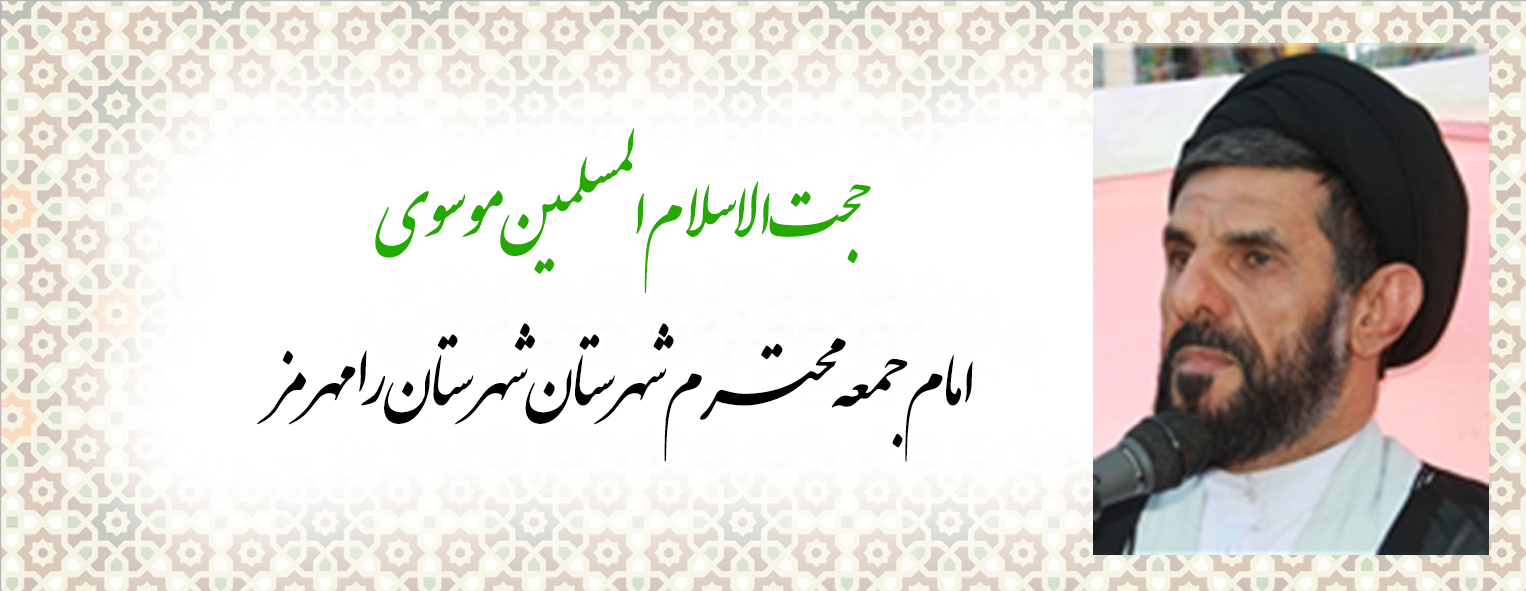 حجت الاسلام المسلمین موسوی
امام جمعه محترم شهرستان شهرستان رامهرمز